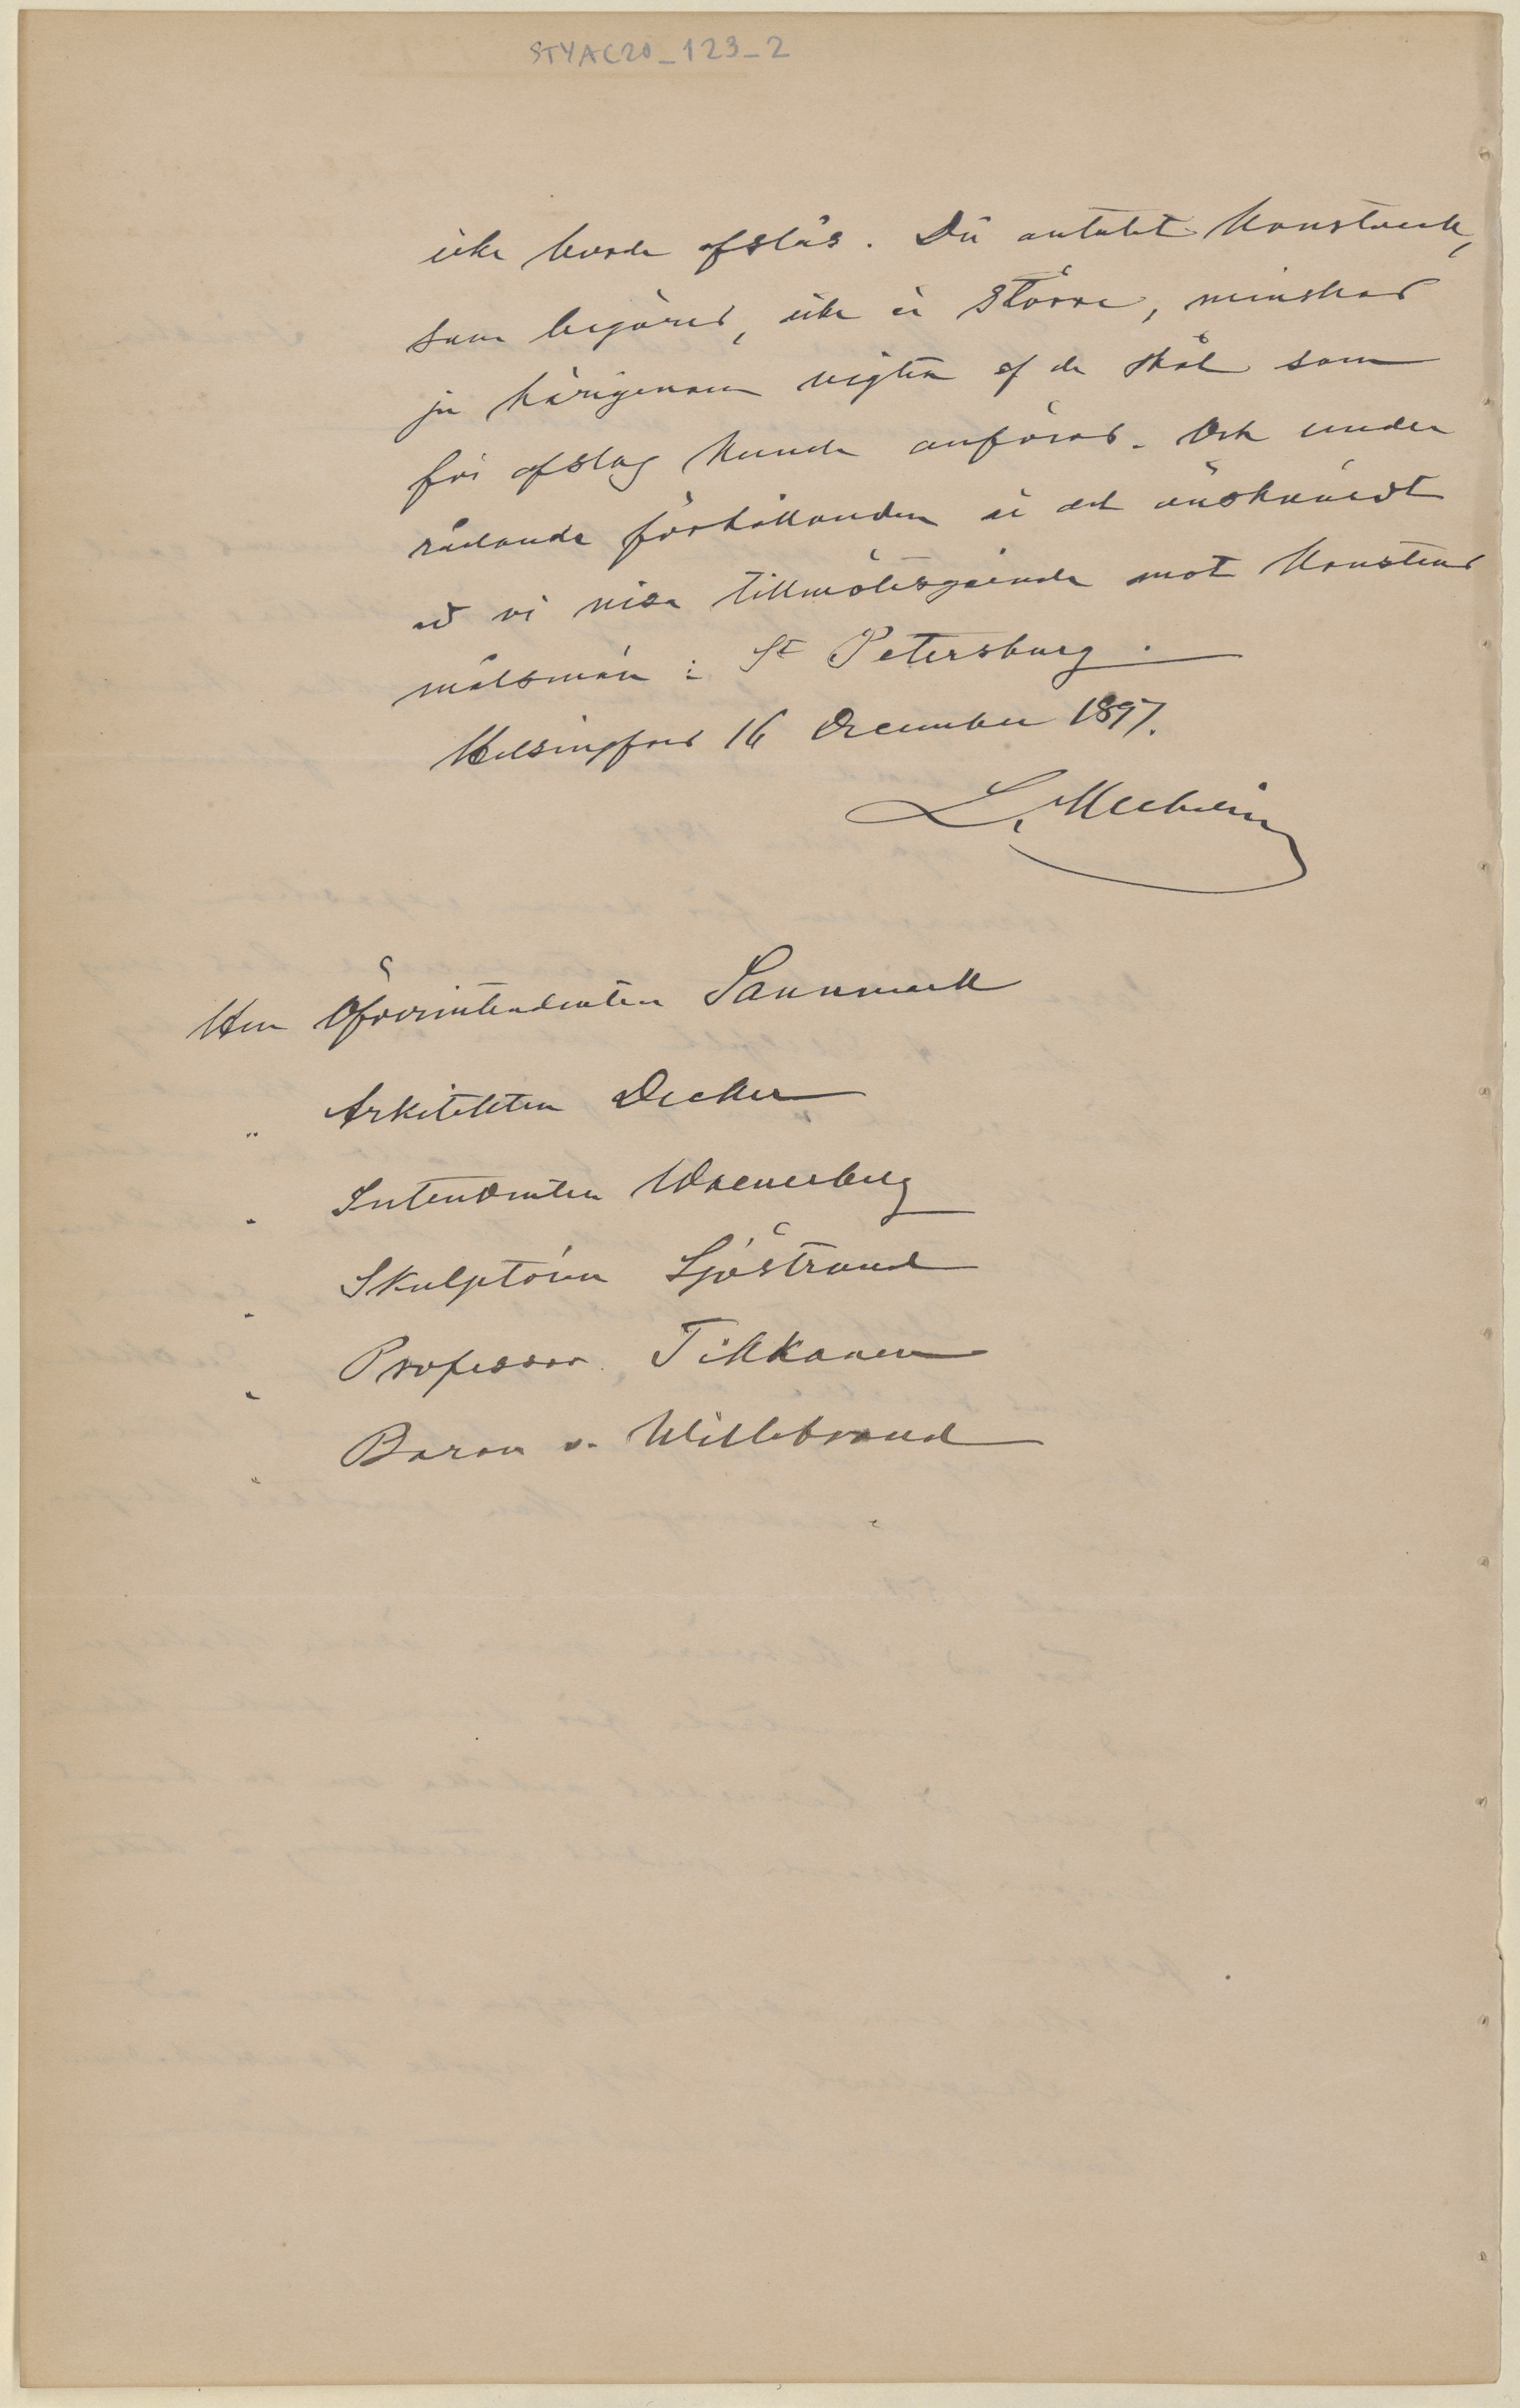 STYAC20_123_2
icke borde afslås. Då antalet konstverk,
som begäres, icke är större, minskas
ju härigenom vigten af de skäl som
för afslag kunde anföras. Och under
rådande förhållanden är det önskvärdt
att vi visa tillmötesgående mot konstens
målsmän i St Petersburg.
Helsingfors 16 December 1897.
L. Mechelin
Herr Öfverintendenten Sannmark
" Arkitekten Decker
" Intendenten Waenerberg
" Skulptören Sjöstrand
" Professor Tikkanen
" Baron v. Willebrand